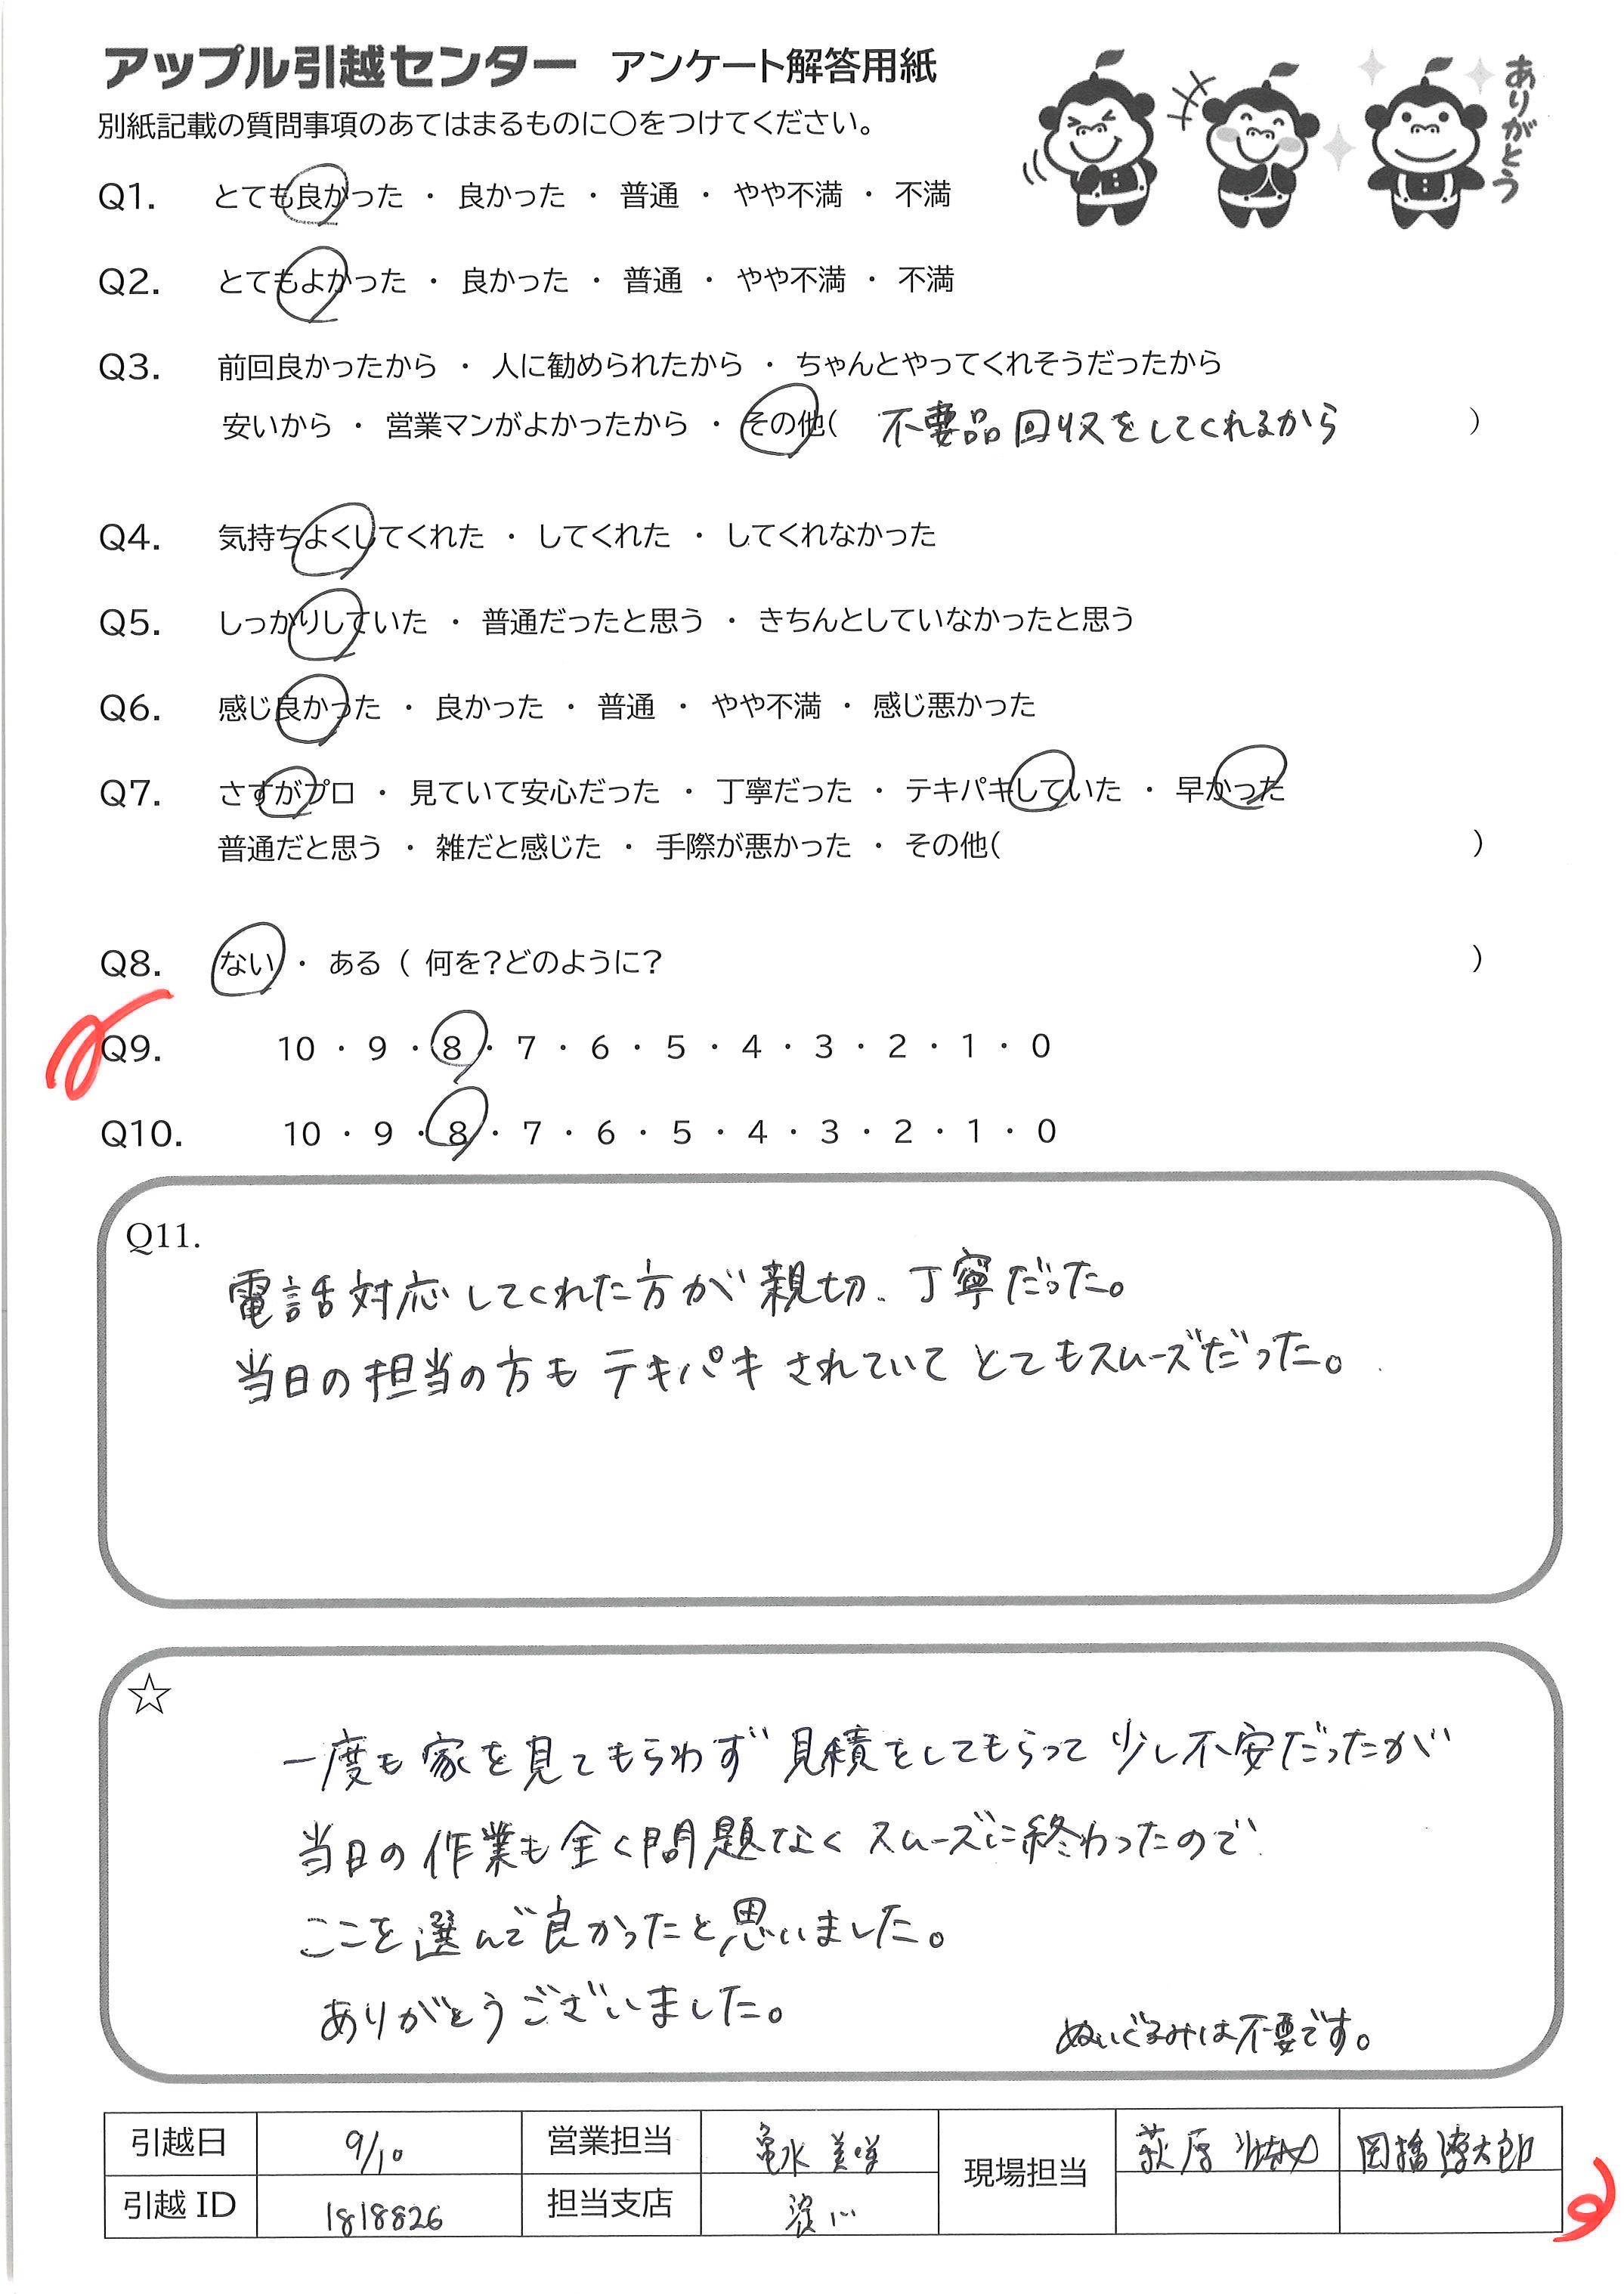 アップル引越センター アンケート解答用紙
ありがとう
別紙記載の質問事項のあてはまるものに○をつけてください。
Q1. とても良かった ・ 良かった ・ 普通 ・ やや不満 ・ 不満
Q2. とてもよかった ・ 良かった ・ 普通 ・ やや不満 ・ 不満
Q3. 前回良かったから ・ 人に勧められたから ・ ちゃんとやってくれそうだったから
安いから ・ 営業マンがよかったから ・ その他( 不要品回収をしてくれるから )
Q4. 気持ちよくしてくれた ・ してくれた ・ してくれなかった
Q5. しっかりしていた ・ 普通だったと思う ・ きちんとしていなかったと思う
Q6. 感じ良かった ・ 良かった ・ 普通 ・ やや不満 ・ 感じ悪かった
Q7. さすがプロ ・ 見ていて安心だった ・ 丁寧だった ・ テキパキしていた ・ 早かった
普通だと思う ・ 雑だと感じた ・ 手際が悪かった ・ その他( )
Q8. ない ・ ある ( 何を?どのように? )
Q9. 10 ・ 9 ・ 8 ・ 7 ・ 6 ・ 5 ・ 4 ・ 3 ・ 2 ・ 1 ・ 0
Q10. 10 ・ 9 ・ 8 ・ 7 ・ 6 ・ 5 ・ 4 ・ 3 ・ 2 ・ 1 ・ 0
Q11.
電話対応してくれた方が親切、丁寧だった。
当日の担当の方もテキパキされていてとてもスムーズだった。
☆
一度も家を見てもらわず見積をしてもらって少し不安だったが
当日の作業も全く問題なくスムーズに終わったので
ここを選んで良かったと思いました。
ありがとうございました。
ぬいぐるみは不要です。
引越日 9/10 営業担当 亀水 美咲 現場担当 萩原 岡橋遼太郎
引越ID 1818826 担当支店